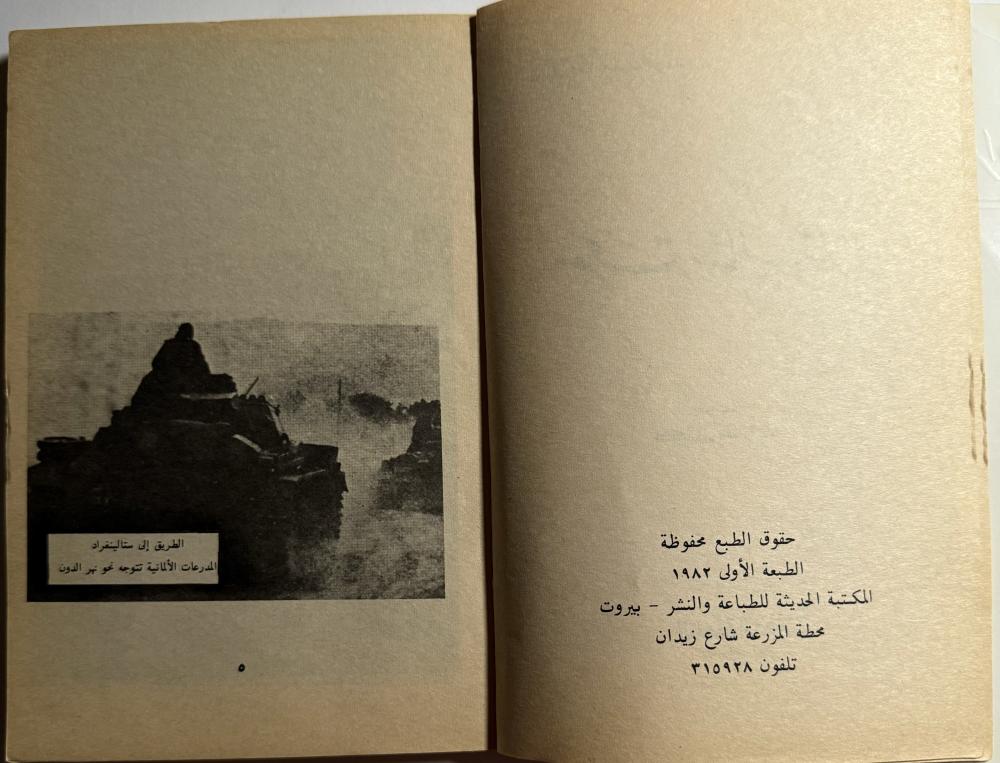 حقوق الطبع محفوظة
الطبعة الأولى ١٩٨٢
المكتبة الحديثة للطباعة والنشر - بيروت
محطة المزرعة شارع زيدان
تلفون ٣١٥٩٢٨
الطريق إلى ستالينغراد
المدرعات الألمانية تتوجه نحو نهر الدون
٥